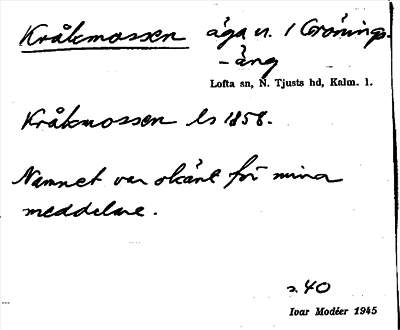 Kråkmossen äga u. / Grönings-
-äng
Lofta sn, N. Tjusts hd, Kalm. l.
Kråkmossen ls 1858.
Namnet var okänt för mina
meddelare.
s. 40
Ivar Modéer 1945